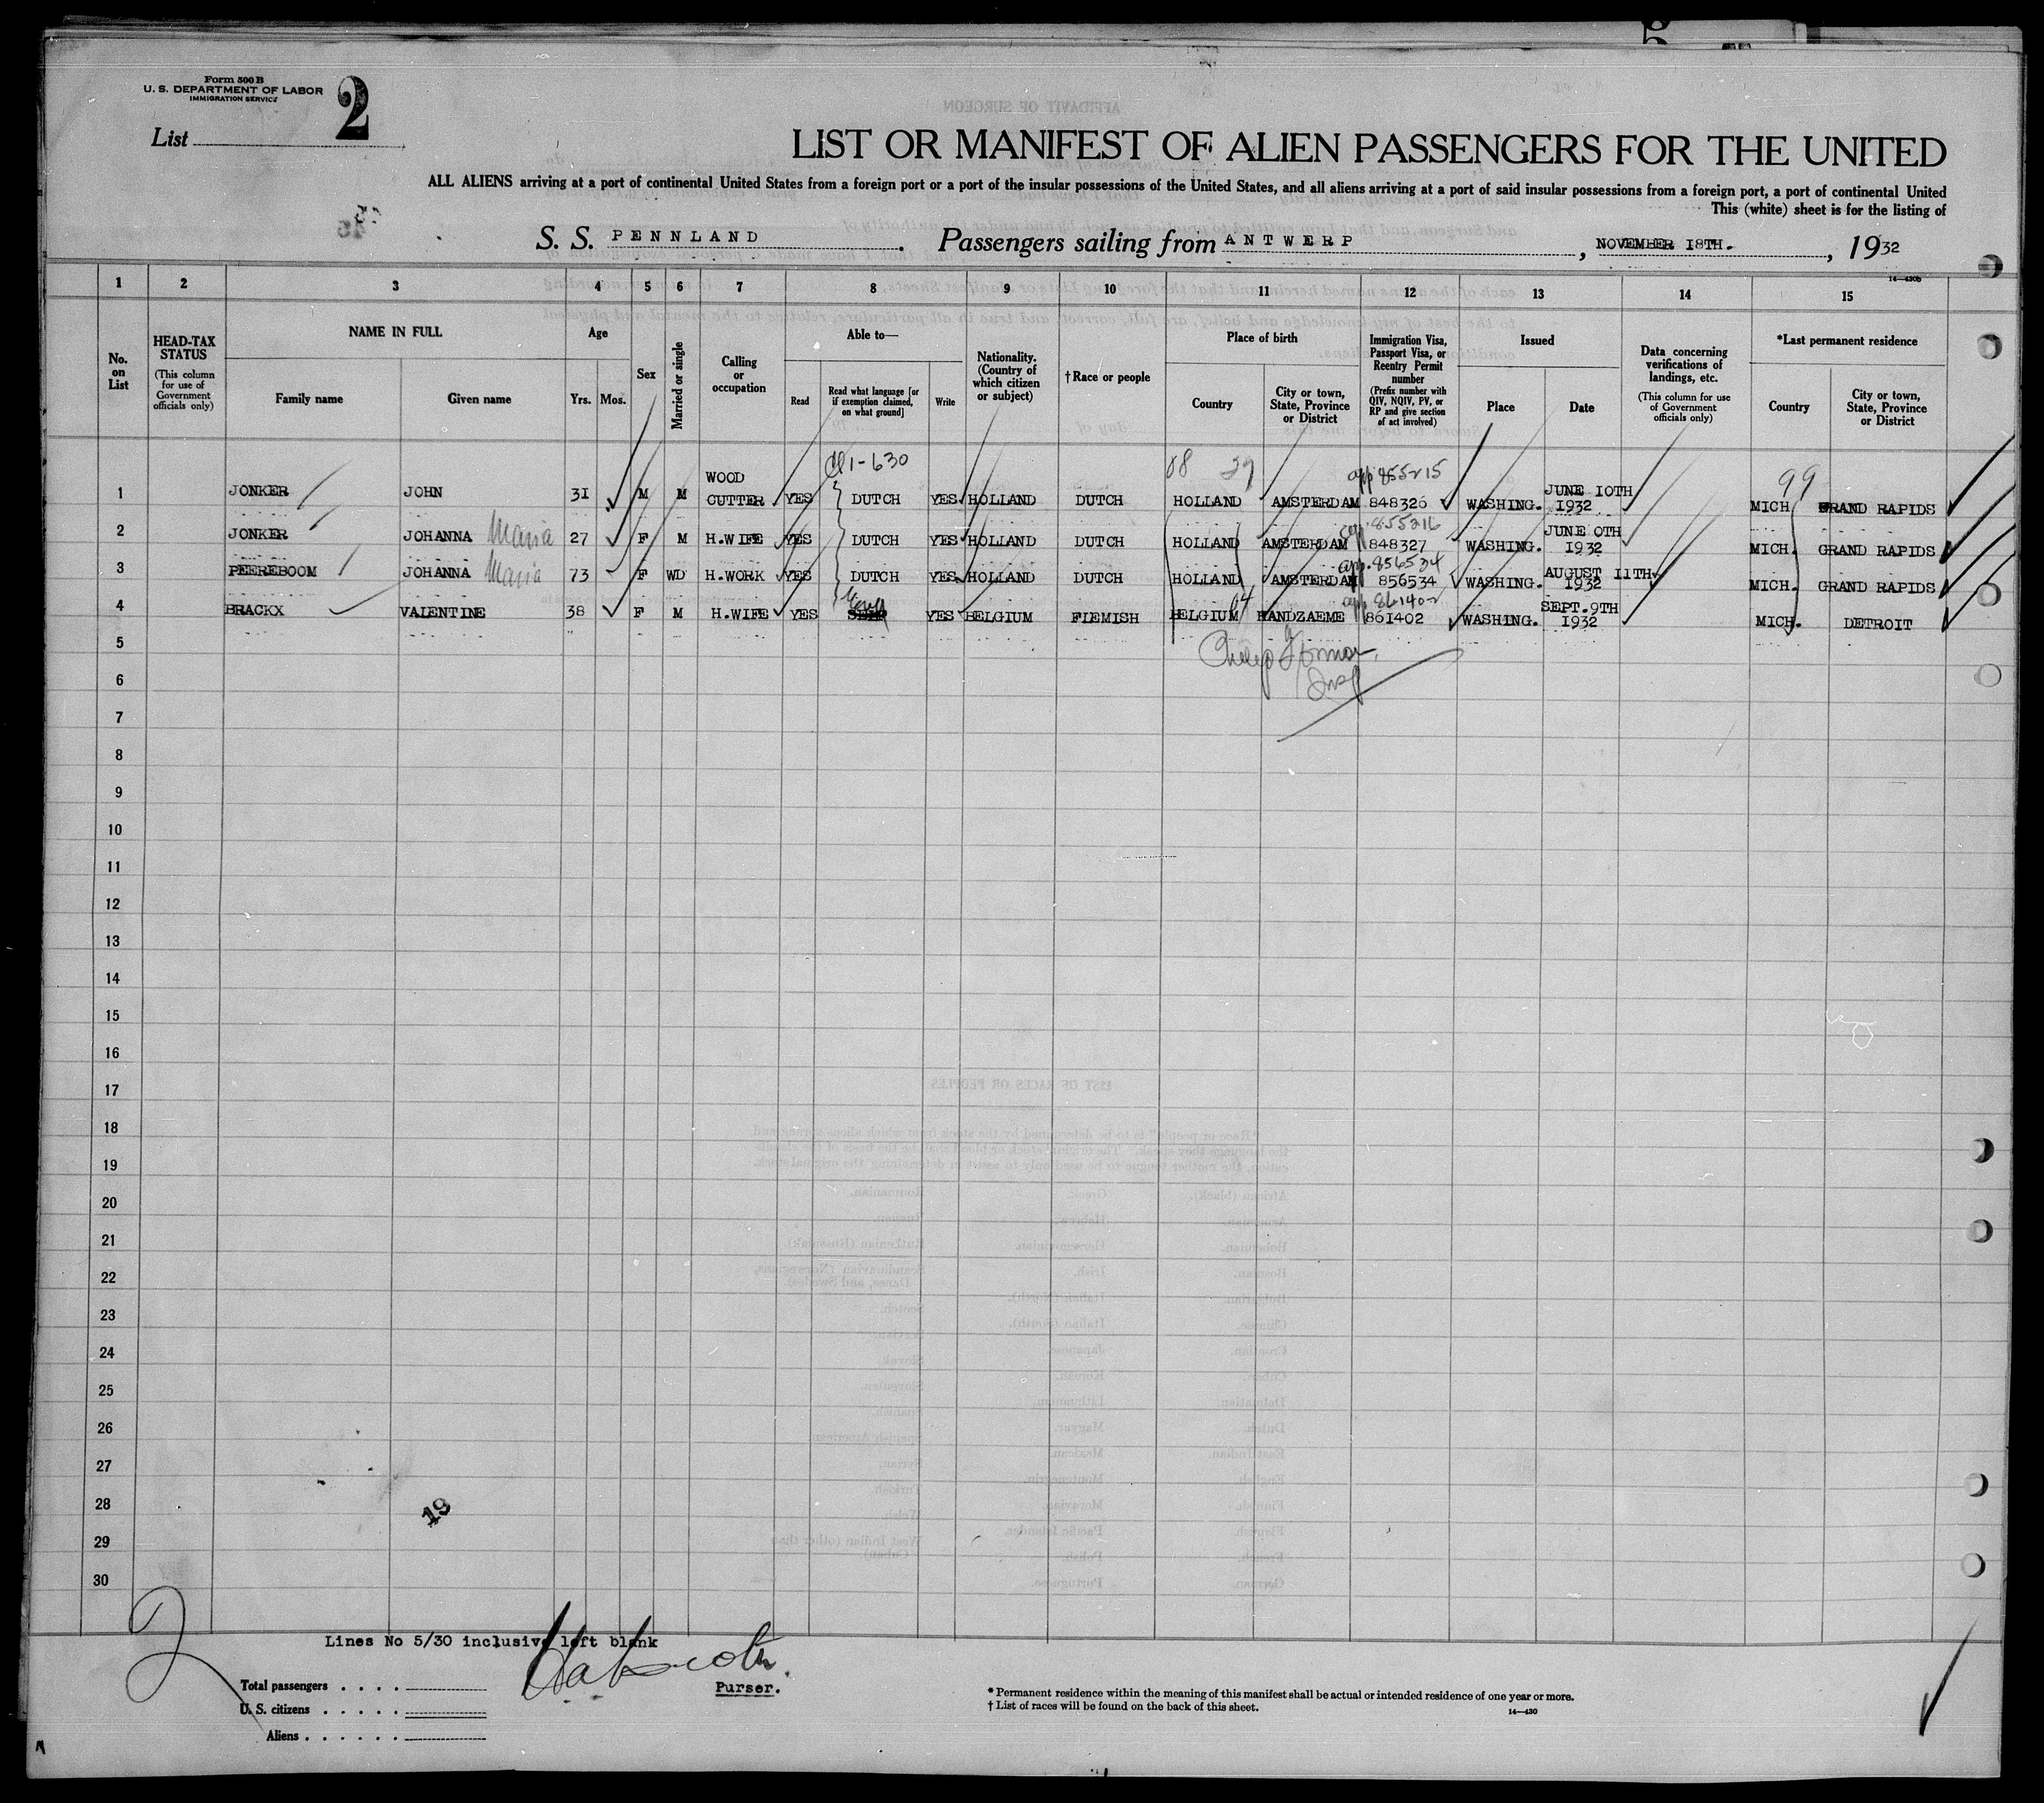 Form 500 B
U. S. DEPARTMENT OF LABOR
IMMIGRATION SERVICE
List 2
LIST OR MANIFEST OF ALIEN PASSENGERS FOR THE UNITED
ALL ALIENS arriving at a port of continental United States from a foreign port or a port of the insular possessions of the United States, and all aliens arriving at a port of said insular possessions from a foreign port, a port of continental United
This (white) sheet is for the listing of
S. S. PENNLAND. Passengers sailing from ANTWERP, NOVEMBER 18TH., 1932
14—430b
1 2 3 4 5 6 7 8 9 10 11 12 13 14 15
No. on List
HEAD-TAX STATUS
(This column for use of Government officials only)
NAME IN FULL
Family name Given name
Age
Yrs. Mos.
Sex
Married or single
Calling or occupation
Able to—
Read
Read what language [or if exemption claimed, on what ground]
Write
Nationality. (Country of which citizen or subject)
†Race or people
Place of birth
Country
City or town, State, Province or District
Immigration Visa, Passport Visa, or Reentry Permit number
(Prefix number with QIV, NQIV, PV, or RP and give section of act involved)
Issued
Place Date
Data concerning verifications of landings, etc.
(This column for use of Government officials only)
*Last permanent residence
Country
City or town, State, Province or District
1-630 99
app 855215
1 JONKER JOHN 31 M M WOOD CUTTER YES DUTCH YES HOLLAND DUTCH HOLLAND AMSTERDAM 848326 WASHING. JUNE 10TH 1932 MICH GRAND RAPIDS
app. 855216
2 JONKER JOHANNA Maria 27 F M H.WIFE YES DUTCH YES HOLLAND DUTCH HOLLAND AMSTERDAM 848327 WASHING. JUNE 0TH 1932 MICH. GRAND RAPIDS
app. 856534
3 PEEREBOOM JOHANNA Maria 73 F WD H.WORK YES DUTCH YES HOLLAND DUTCH HOLLAND AMSTERDAM 856534 WASHING. AUGUST 11TH 1932 MICH. GRAND RAPIDS
app 861402
4 BRACKX VALENTINE 38 F M H.WIFE YES YES BELGIUM FLEMISH BELGIUM 64 HANDZAEME 861402 WASHING. SEPT. 9TH 1932 MICH. DETROIT
5
6
7
8
9
10
11
12
13
14
15
16
17
18
19
20
21
22
23
24
25
26
27
28
29
30
19
2
Lines No 5/30 inclusive left blank
Purser.
Total passengers
U. S. citizens
Aliens
* Permanent residence within the meaning of this manifest shall be actual or intended residence of one year or more.
† List of races will be found on the back of this sheet.
14—430